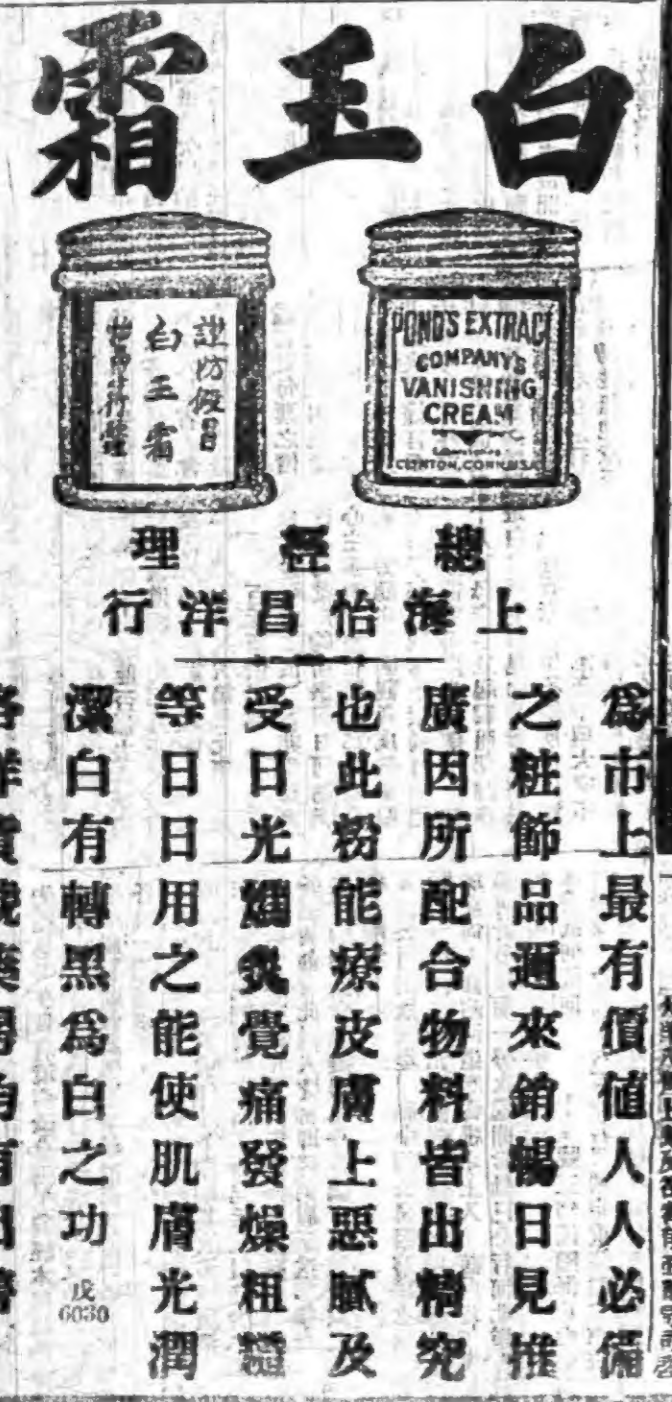 白玉霜
POND'S EXTRACT
COMPANY'S
VANISHING
CREAM
CLINTON, CONN. U.S.A.
謹防假冒
白玉霜
總經理
上海怡昌洋行
為市上最有價值人人必備
之粧飾品邇來銷暢日見推
廣因所配合物料皆出精究
也此粉能療皮膚上惡膩及
受日光爛炙覺痛發燥粗糙
等日日用之能使肌膚光潤
潔白有轉黑為白之功
戊
6030